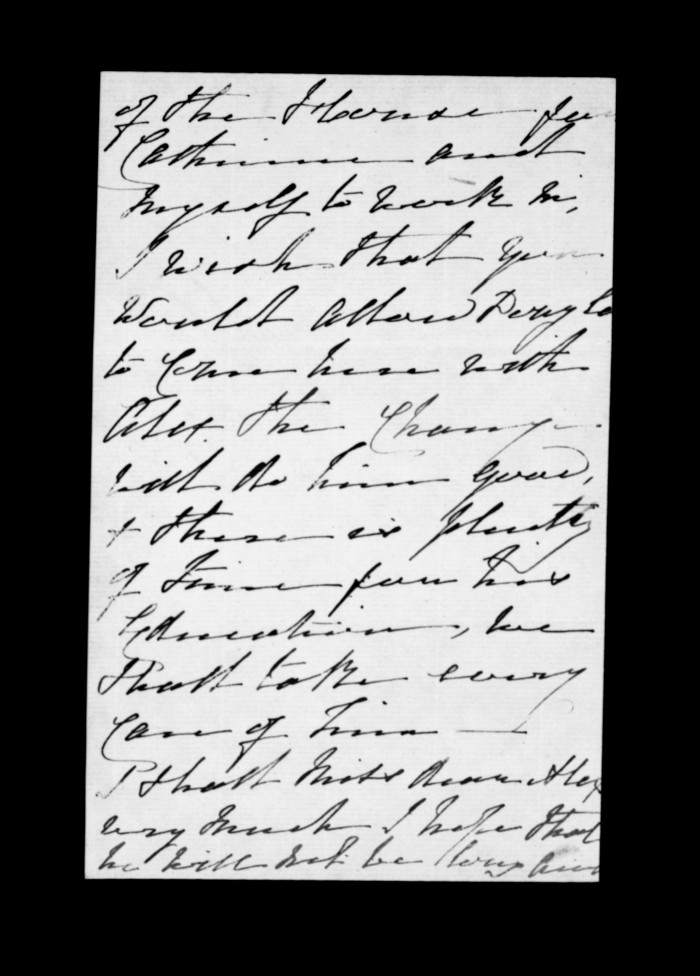 of the House for
Catherine and
myself to work in,
I wish that you
would allow Dougla
to come here with
Alex. the change
will do him good,
+ there is plenty
of time for his
Education, we
shall take every
care of him —
I shall miss dear Alex
very much I hope that
he will not be long